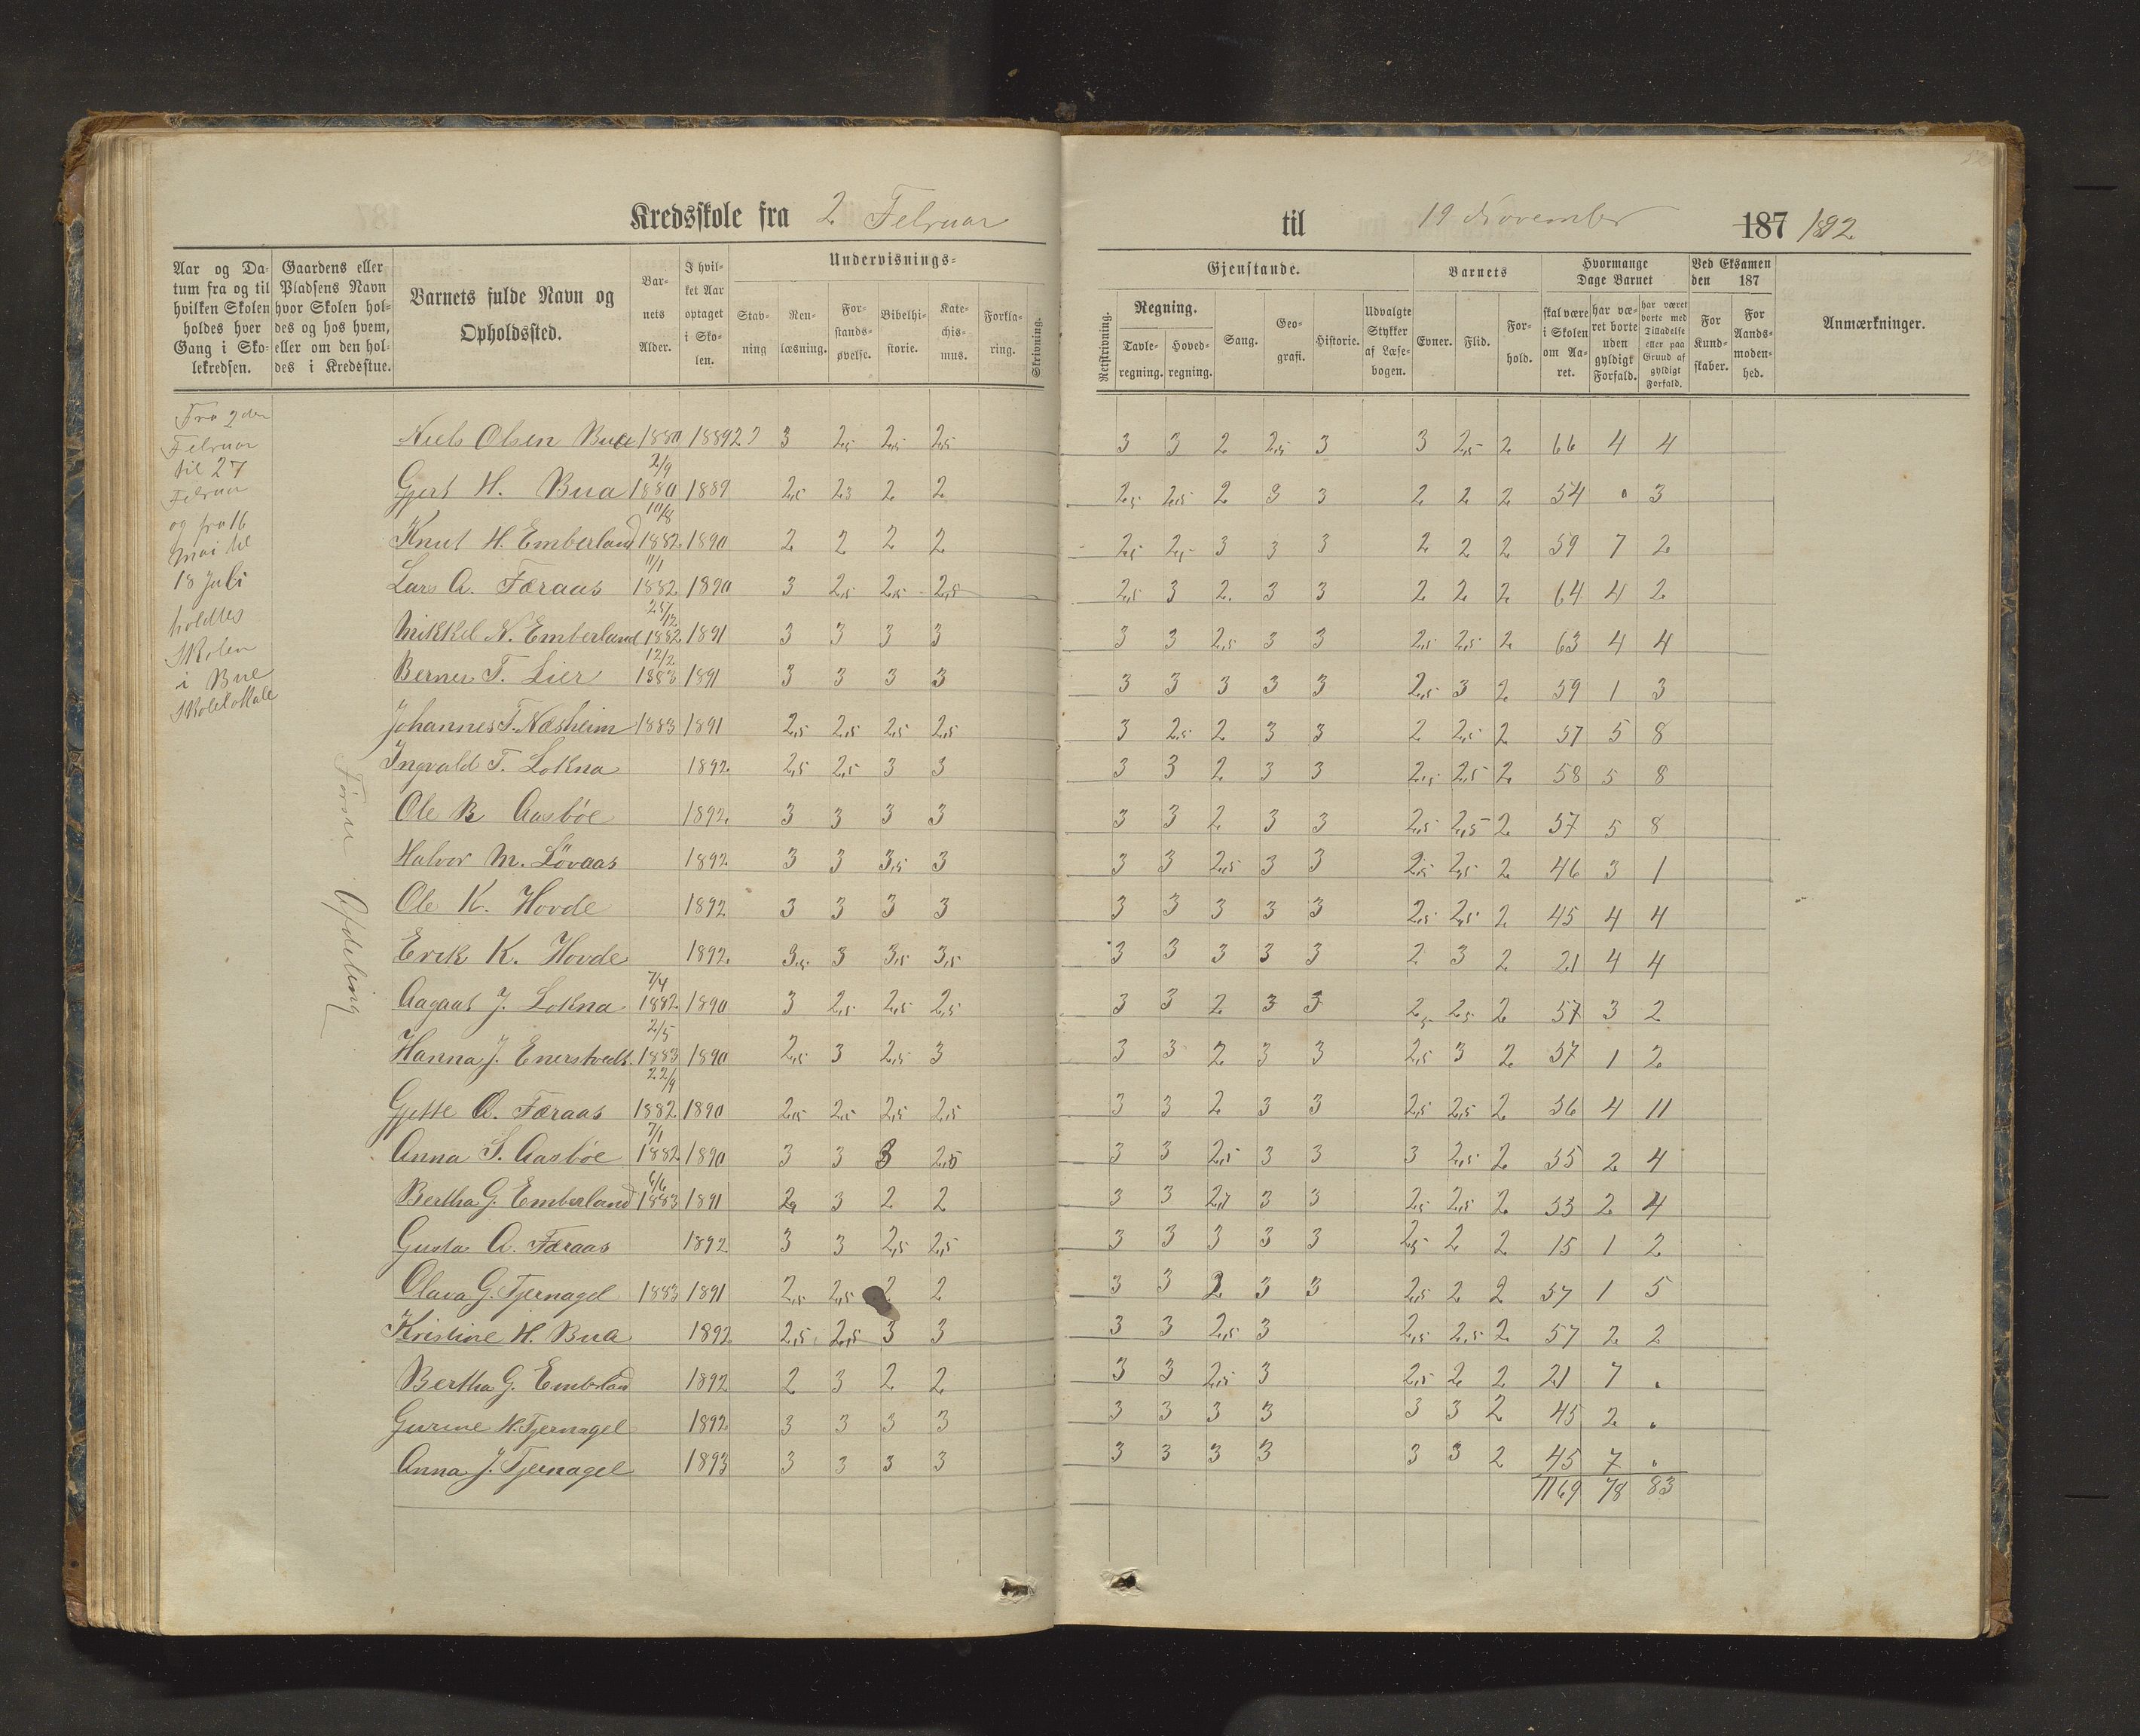 Kredsskole fra 2 Februar til 19 November 187 1892
Aar og Datum fra og til hvilken Skolen holdes hver Gang i Skolekredsen.
Gaardens eller Pladsens Navn hvor Skolen holdes og hos hvem, eller om den holdes i Kredsstue.
Barnets fulde Navn og Opholdssted.
Barnets Alder.
I hvilket Aar optaget i Skolen.
Undervisnings-
Stavning
Renlæsning.
Forstandsøvelse.
Bibelhistorie.
Katechismus.
Forklaring.
Skrivning.
Gjenstande.
Retskrivning.
Regning.
Tavleregning.
Hovedregning.
Sang.
Geografi.
Historie.
Udvalgte Stykker af Læsebogen.
Barnets
Evner.
Flid.
Forhold.
Hvormange Dage Barnet
skal være i Skolen om Aaret.
har været borte uden gyldigt Forfald.
har været borte med Tilladelse eller paa Grund af gyldigt Forfald.
Ved Eksamen den 187
For Kundskaber.
For Aandsmodenhed.
Anmærkninger.
Fra 2den
Februar
til 27
Februar
og fra 16
Mai til
18 Juli
holdtes
Skolen
i Bue
Skolelokale
Første Afdeling
Niels Olsen Bue 1880 1889 3 2,5 2,5 2,5 3 3 2 2,5 3 3 2,5 2 66 4 4
2/9
Gjert H. Bua 1880 1889 2,5 2,3 2 2 2,5 2,5 2 3 3 2 2 2 54 0 3
10/8
Knut H. Emberland 1882 1890 2 2 2 2 2,5 2,5 3 3 3 2 2 2 59 7 2
11/1
Lars A. Færaas 1882 1890 3 2,5 2,5 2,5 2,5 3 2 3 3 2 2 2 64 4 2
25/12
Mikkel N. Emberland 1882 1891 3 3 3 3 3 3 2,5 3 3 2,5 2,5 2 63 4 4
12/2
Berner T. Lier 1883 1891 3 3 3 3 3 3 3 3 3 2,5 3 2 59 1 3
Johannes T. Næsheim 1883 1891 2,5 2,5 2,5 2,5 3 2,5 2 3 3 2 2,5 2 57 5 8
Ingvald T. Lokna 1892 2,5 2,5 3 3 3 3 2 3 3 2,5 2,5 2 58 5 8
Ole B Aasböe 1892 3 3 3 3 3 3 2 3 3 2,5 2,5 2 57 5 8
Halvor M. Lövaas 1892 3 3 3,5 3 3 3 2,5 3 3 2,5 2,5 2 46 3 1
Ole K. Hovde 1892 3 3 3 3 3 3 3 3 3 2,5 2,5 2 45 4 4
Erik K. Hovde 1892 3,5 3 3,5 3,5 3 3 3 3 3 2 3 2 21 4 4
7/4
Aagaat J. Lokna 1882 1890 3 2,5 2,5 2,5 3 3 2 3 3 2,5 2,5 2 57 3 2
2/5
Hanna J. Enerstvedt 1883 1890 2,5 3 2,5 3 3 3 2 3 3 2,5 3 2 57 1 2
22/9
Gjette A. Færaas 1882 1890 2,5 2,5 2,5 2,5 3 3 2 3 3 2,5 2,5 2 56 4 11
7/1
Anna S. Aasböe 1882 1890 3 3 3 2,5 3 3 2,5 3 3 3 2,5 2 55 2 4
6/6
Bertha G. Emberland 1883 1891 3 2 2 3 3 3 3 2,5 2,5 2 53 2 4
Gusta A. Færaas 1892 3 3 2,5 2,5 3 3 3 3 3 2,5 2 2 15 1 2
Olava G. Tjernagel 1883 1891 2,5 2,5 2 2 3 3 2 3 3 2,5 2 2 57 1 5
Kristine H. Bua 1892 2,5 2,5 3 3 3 3 2,5 3 2,5 2,5 2 57 2 2
Bertha G. Emberland 1892 2 3 2 2 3 3 2,5 3 2,5 2 2 21 7 .
Gurine H. Tjernagel 1892 3 3 3 3 3 3 3 3 3 3 2 45 2 .
Anna J. Tjernagel 1893 3 3 3 3 3 3 3 3 3 3 2 45 7 .
1169 78 83